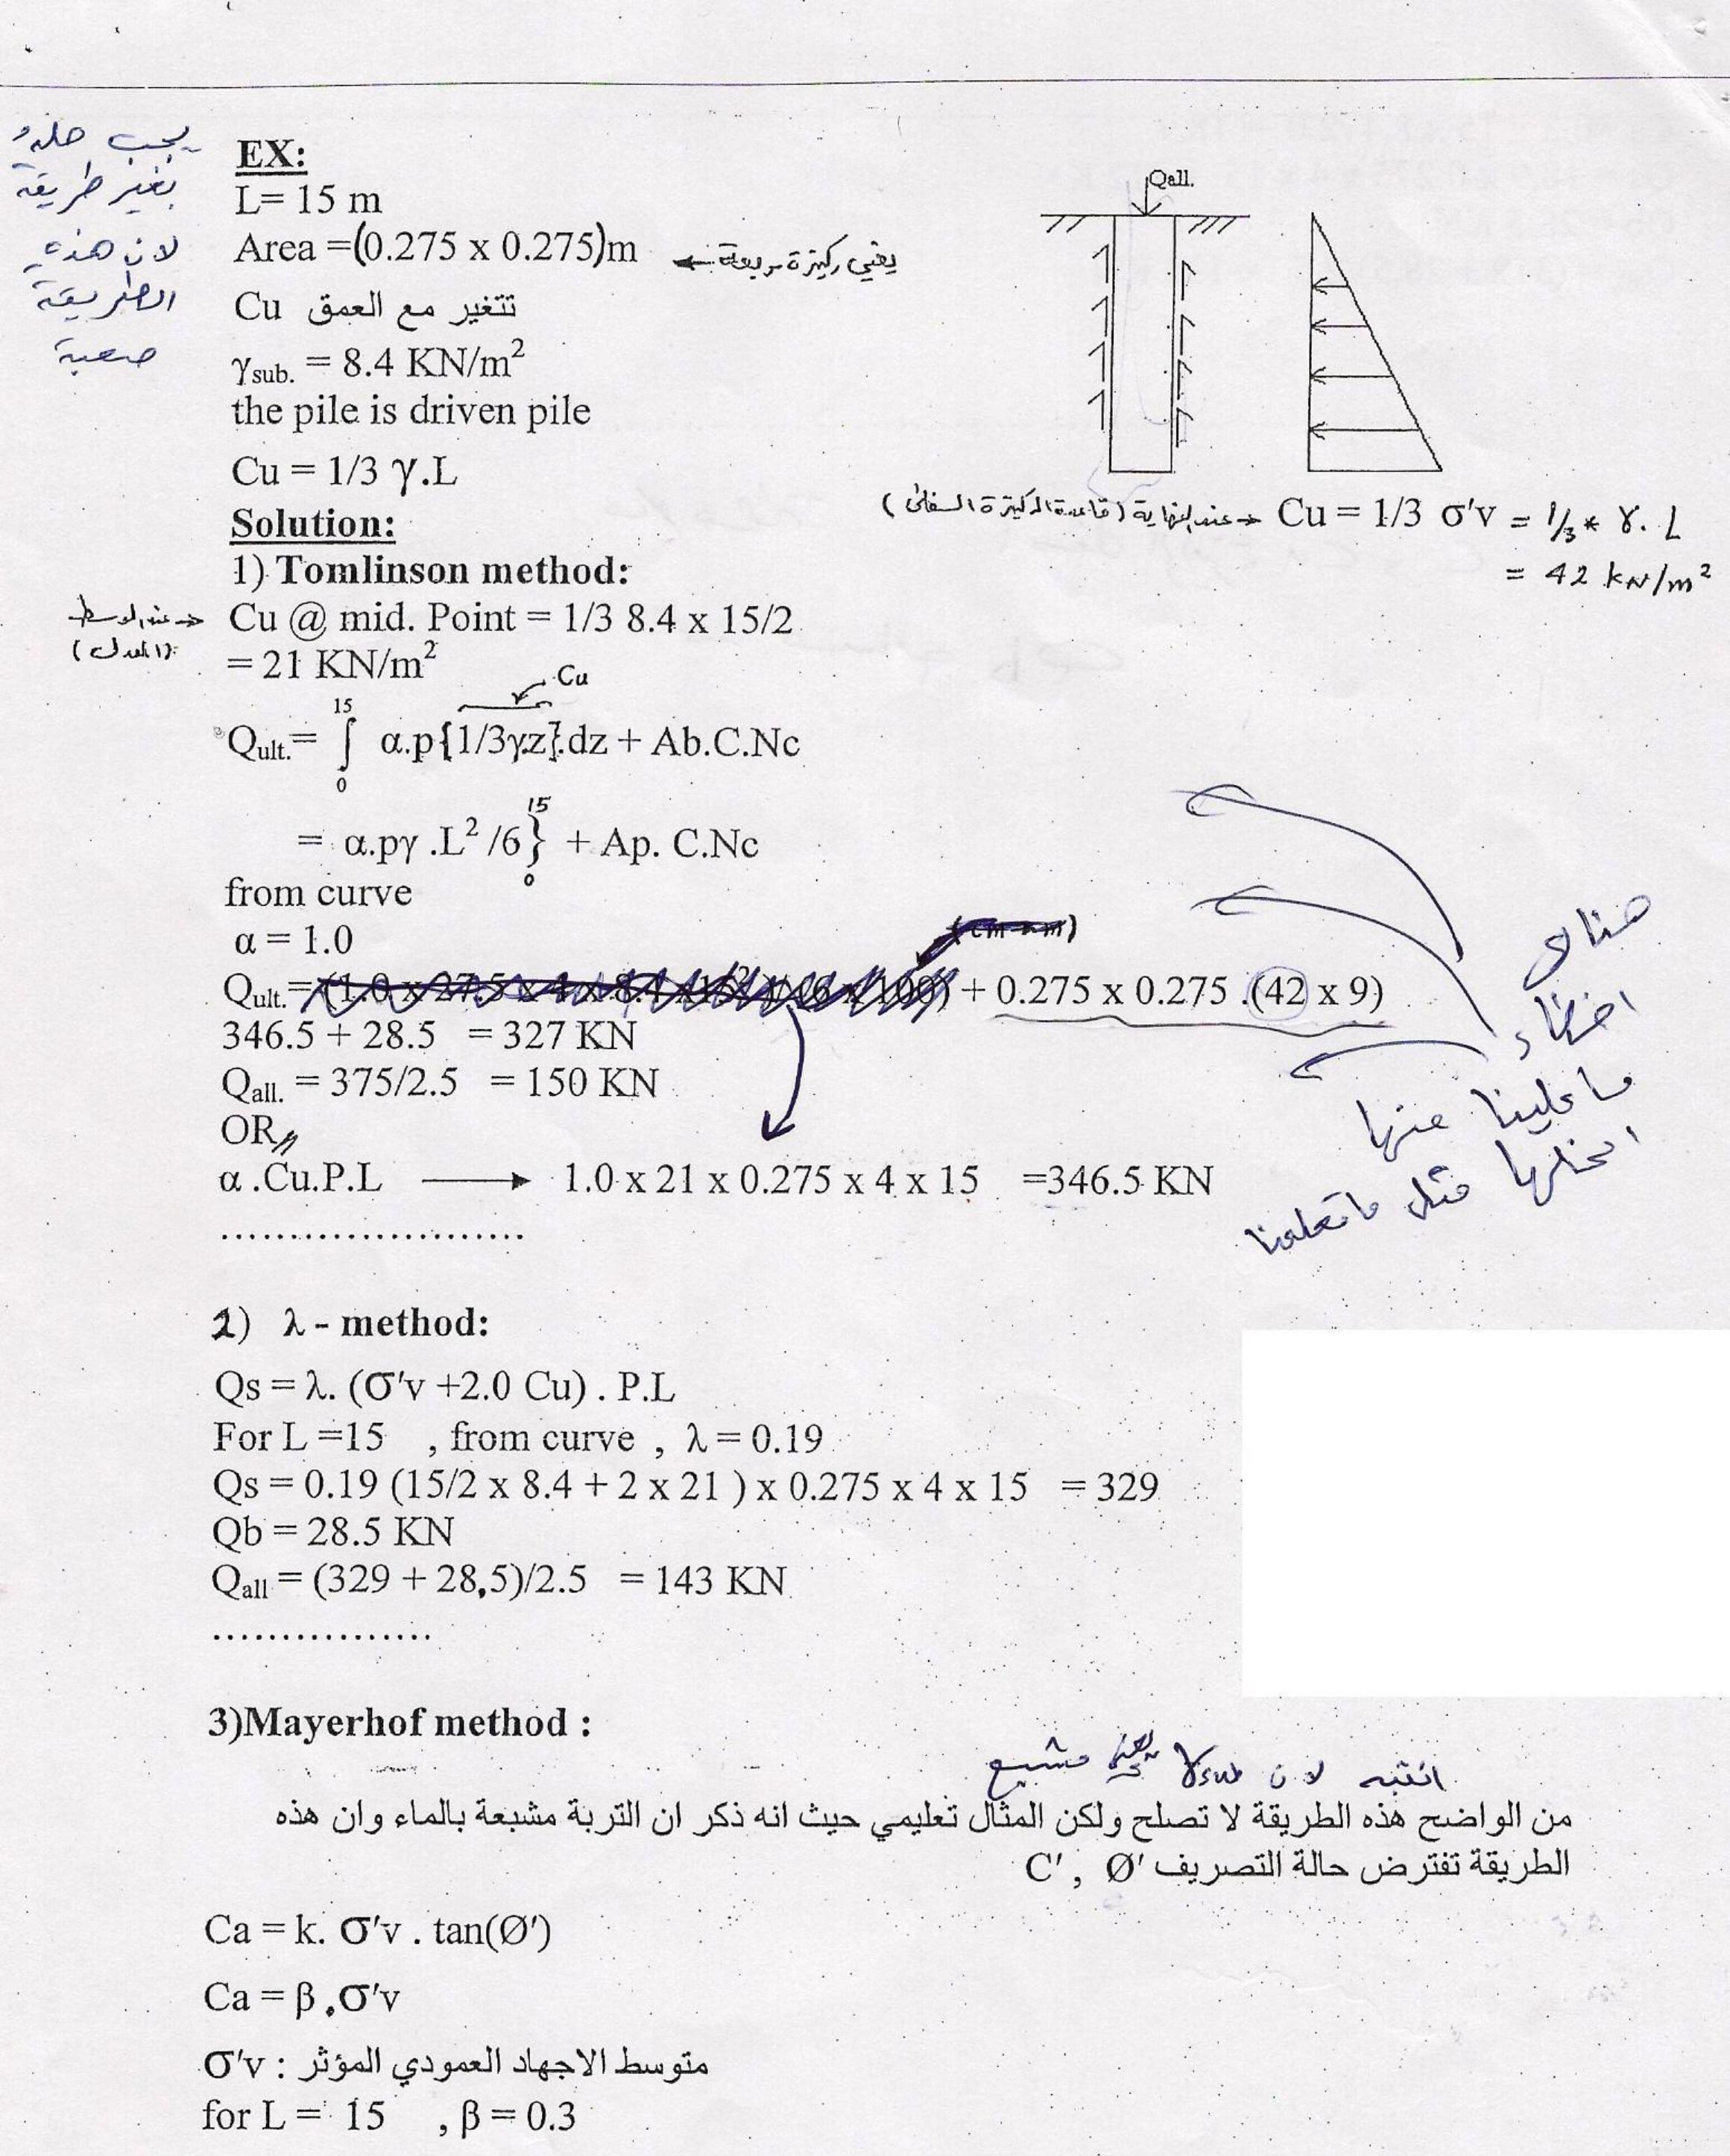 يجب حله
بغير طريقة
لان هذه
الطريقة
صعبة
EX:
L= 15 m
Area =(0.275 x 0.275)m ← يعني ركيزة مربعة
Cu تتغير مع العمق
γsub. = 8.4 KN/m²
the pile is driven pile
Cu = 1/3 γ.L
Qall.
Cu = 1/3 σ'v = 1/3 * γ. L ← عند النهاية (قاعدة الركيزة السفلى)
= 42 kN/m²
Solution:
1) Tomlinson method:
Cu @ mid. Point = 1/3 8.4 x 15/2 ← عند الوسط
(المعدل)
= 21 KN/m²
Cu
Qult.= ∫₀¹⁵ α.p{1/3γz}.dz + Ab.C.Nc
= α.pγ .L² /6}₀¹⁵ + Ap. C.Nc
from curve
α = 1.0
(cm → m)
Qult.= (1.0 x 27.5 x 4 x 8.4 x 15²)/(6 x 100) + 0.275 x 0.275 .(42 x 9)
346.5 + 28.5 = 327 KN
Qall. = 375/2.5 = 150 KN
OR
α .Cu.P.L → 1.0 x 21 x 0.275 x 4 x 15 =346.5 KN
.......................
هناك
اخطاء
ما علينا منها
احلها مثل ما تعلمنا
2) λ - method:
Qs = λ. (σ'v +2.0 Cu) . P.L
For L =15 , from curve , λ = 0.19
Qs = 0.19 (15/2 x 8.4 + 2 x 21 ) x 0.275 x 4 x 15 = 329
Qb = 28.5 KN
Qall = (329 + 28,5)/2.5 = 143 KN
.................
3)Mayerhof method :
انتبه لان γsub يعني مشبع
من الواضح هذه الطريقة لا تصلح ولكن المثال تعليمي حيث انه ذكر ان التربة مشبعة بالماء وان هذه
الطريقة تفترض حالة التصريف C' , Ø'
Ca = k. σ'v . tan(Ø')
Ca = β.σ'v
σ'v : متوسط الاجهاد العمودي المؤثر
for L = 15 , β = 0.3